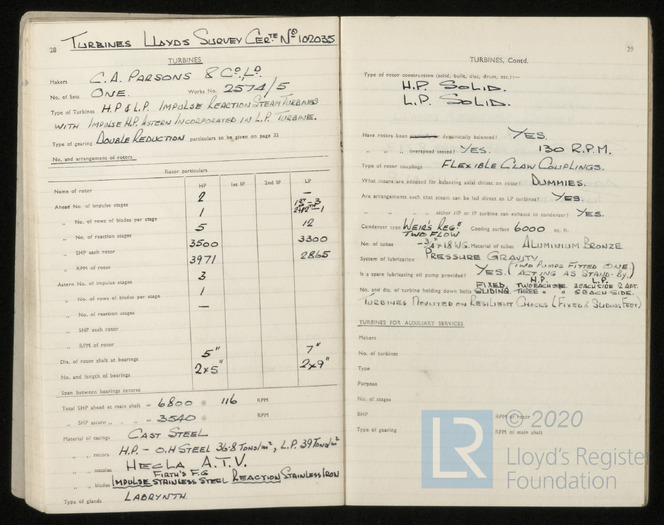 28 TURBINES LLOYDS SURVEY CERTE No 102035
TURBINES
Makers C.A. PARSONS & CO. LD.
No. of Sets ONE. Works No. 2574/5
Type of Turbines H.P & L.P. IMPULSE REACTION STEAM TURBINES
WITH IMPULSE H.P. ASTERN INCORPORATED IN L.P. TURBINE.
Type of gearing DOUBLE REDUCTION particulars to be given on page 32
No. and arrangement of rotors
Rotor particulars
Name of rotor HP 1st IP 2nd IP LP
Ahead No. of impulse stages 2 —
„ No. of rows of blades per stage 1
„ No. of reaction stages 5 12
„ SHP each rotor 3500 3300
„ RPM of rotor 3971 2865
Astern No. of impulse stages 3
„ No. of rows of blades per stage 1
„ No. of reaction stages —
„ SHP each rotor
„ RPM of rotor
Dia. of rotor shaft at bearings 5" 7"
No. and length of bearings 2x5" 2x9"
Span between bearings centres
Total SHP ahead at main shaft - 6800 @ 116 RPM
„ SHP astern „ „ „ - 3540 @ RPM
Material of casings CAST STEEL
„ „ rotors H.P. - O.H STEEL 36.8 TONS/IN², L.P. 39 TONS/IN²
„ „ nozzles HECLA A.T.V.
FIRTH'S F.G
„ „ blades IMPULSE STAINLESS STEEL REACTION STAINLESS IRON
Type of glands LABRYNTH
29
TURBINES, Contd.
Type of rotor construction (solid, built, disc, drum, etc.):—
H.P. SOLID.
L.P. SOLID.
Have rotors been dynamically balanced? YES.
„ „ „ overspeed tested? YES. 130 R.P.M.
Type of rotor couplings FLEXIBLE CLAW COUPLINGS.
What means are adopted for balancing axial thrust on rotor? DUMMIES.
Are arrangements such that steam can be led direct to LP turbines? YES.
„ „ „ either HP or IP turbine can exhaust to condenser? YES.
Condenser type WEIR'S REGE TWO FLOW Cooling surface 6000 sq. ft.
No. of tubes - 3/4" x 18 WG. Material of tubes ALUMINIUM BRONZE
System of lubrication PRESSURE GRAVITY
Is a spare lubricating oil pump provided? YES. (TWO PUMPS FITTED ONE) (ACTING AS STAND-BY.)
H.P. L.P.
No. and dia. of turbine holding down bolts FIXED, TWO EACH SIDE 2 EACH SIDE 2 AFT.
SLIDING. THREE „ „ 5 EACH SIDE.
TURBINES MOUNTED ON RESILIENT CHOCKS (FIXED & SLIDING FEET)
TURBINES FOR AUXILIARY SERVICES
Makers
No. of turbines
Type
Purpose
No. of stages
SHP RPM of rotor
Type of gearing RPM of main shaft
LR © 2020
Lloyd's Register
Foundation